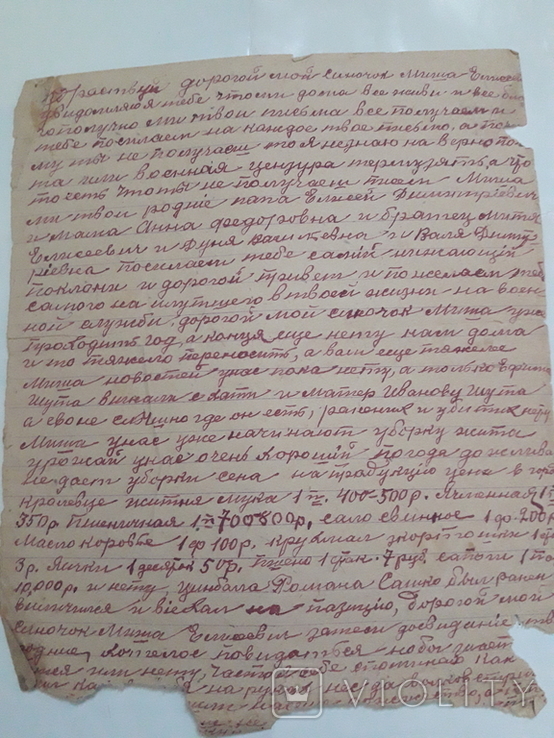 дорогой мой синочок Миша Елисеев
тебе что ми дома все живи и все бла
гополучно ми твои письма все получаем и
тебе посилаем на каждое твое письмо, а поч
му ти не получаеш то я незнаю наверно по
та или военная цензура а що
то есть что ти не получаеш писем Миша
ми твои родние папа Елисей Димитриевич
и Мама Анна Федоровна и братец Митя
Елисеевич и Дуня Василевна и Валя Дмит
риевна посилаем тебе самий нижающий
поклон и дорогой привет и пожелаем теб
самого на илутшего в твоей жизни на воен
ной службе, дорогой мой синочок Миша уже
проходить год, а конця еще нету нам дома
и то тяжело переносить, а вам еще тяжелее
Миша новостей унас пока нету, а только Ефима
Шута вигнали с хати и матер Иванову Шута
а евоне слишно где он есть, раненик и убитик нету
Миша унас уже начинают уборку жита
урожай унас очень хороший погода дожлива
не даст уборки сена на продукцию цена в горо
Кролевце житня мука 1 п. 400-500р. Ячменная 1 п
350р Пшеничная 1 п 700-800р, сало свинное 1 ф-200р
Масло коровье 1 ф 100р.
3р. Яички 1 десяток 50р. Пшено 1 7 руб, сапоги 1 па
10,000р. и нету, Цимбала Романа Сашко був ранен
вилічился и виехал на позицию, Дорогой мой
синочок Миша Елисеевич затем досвидание
родние, хотелос повидаться небог знает
или нету, часто я себе споминаю как
на руках